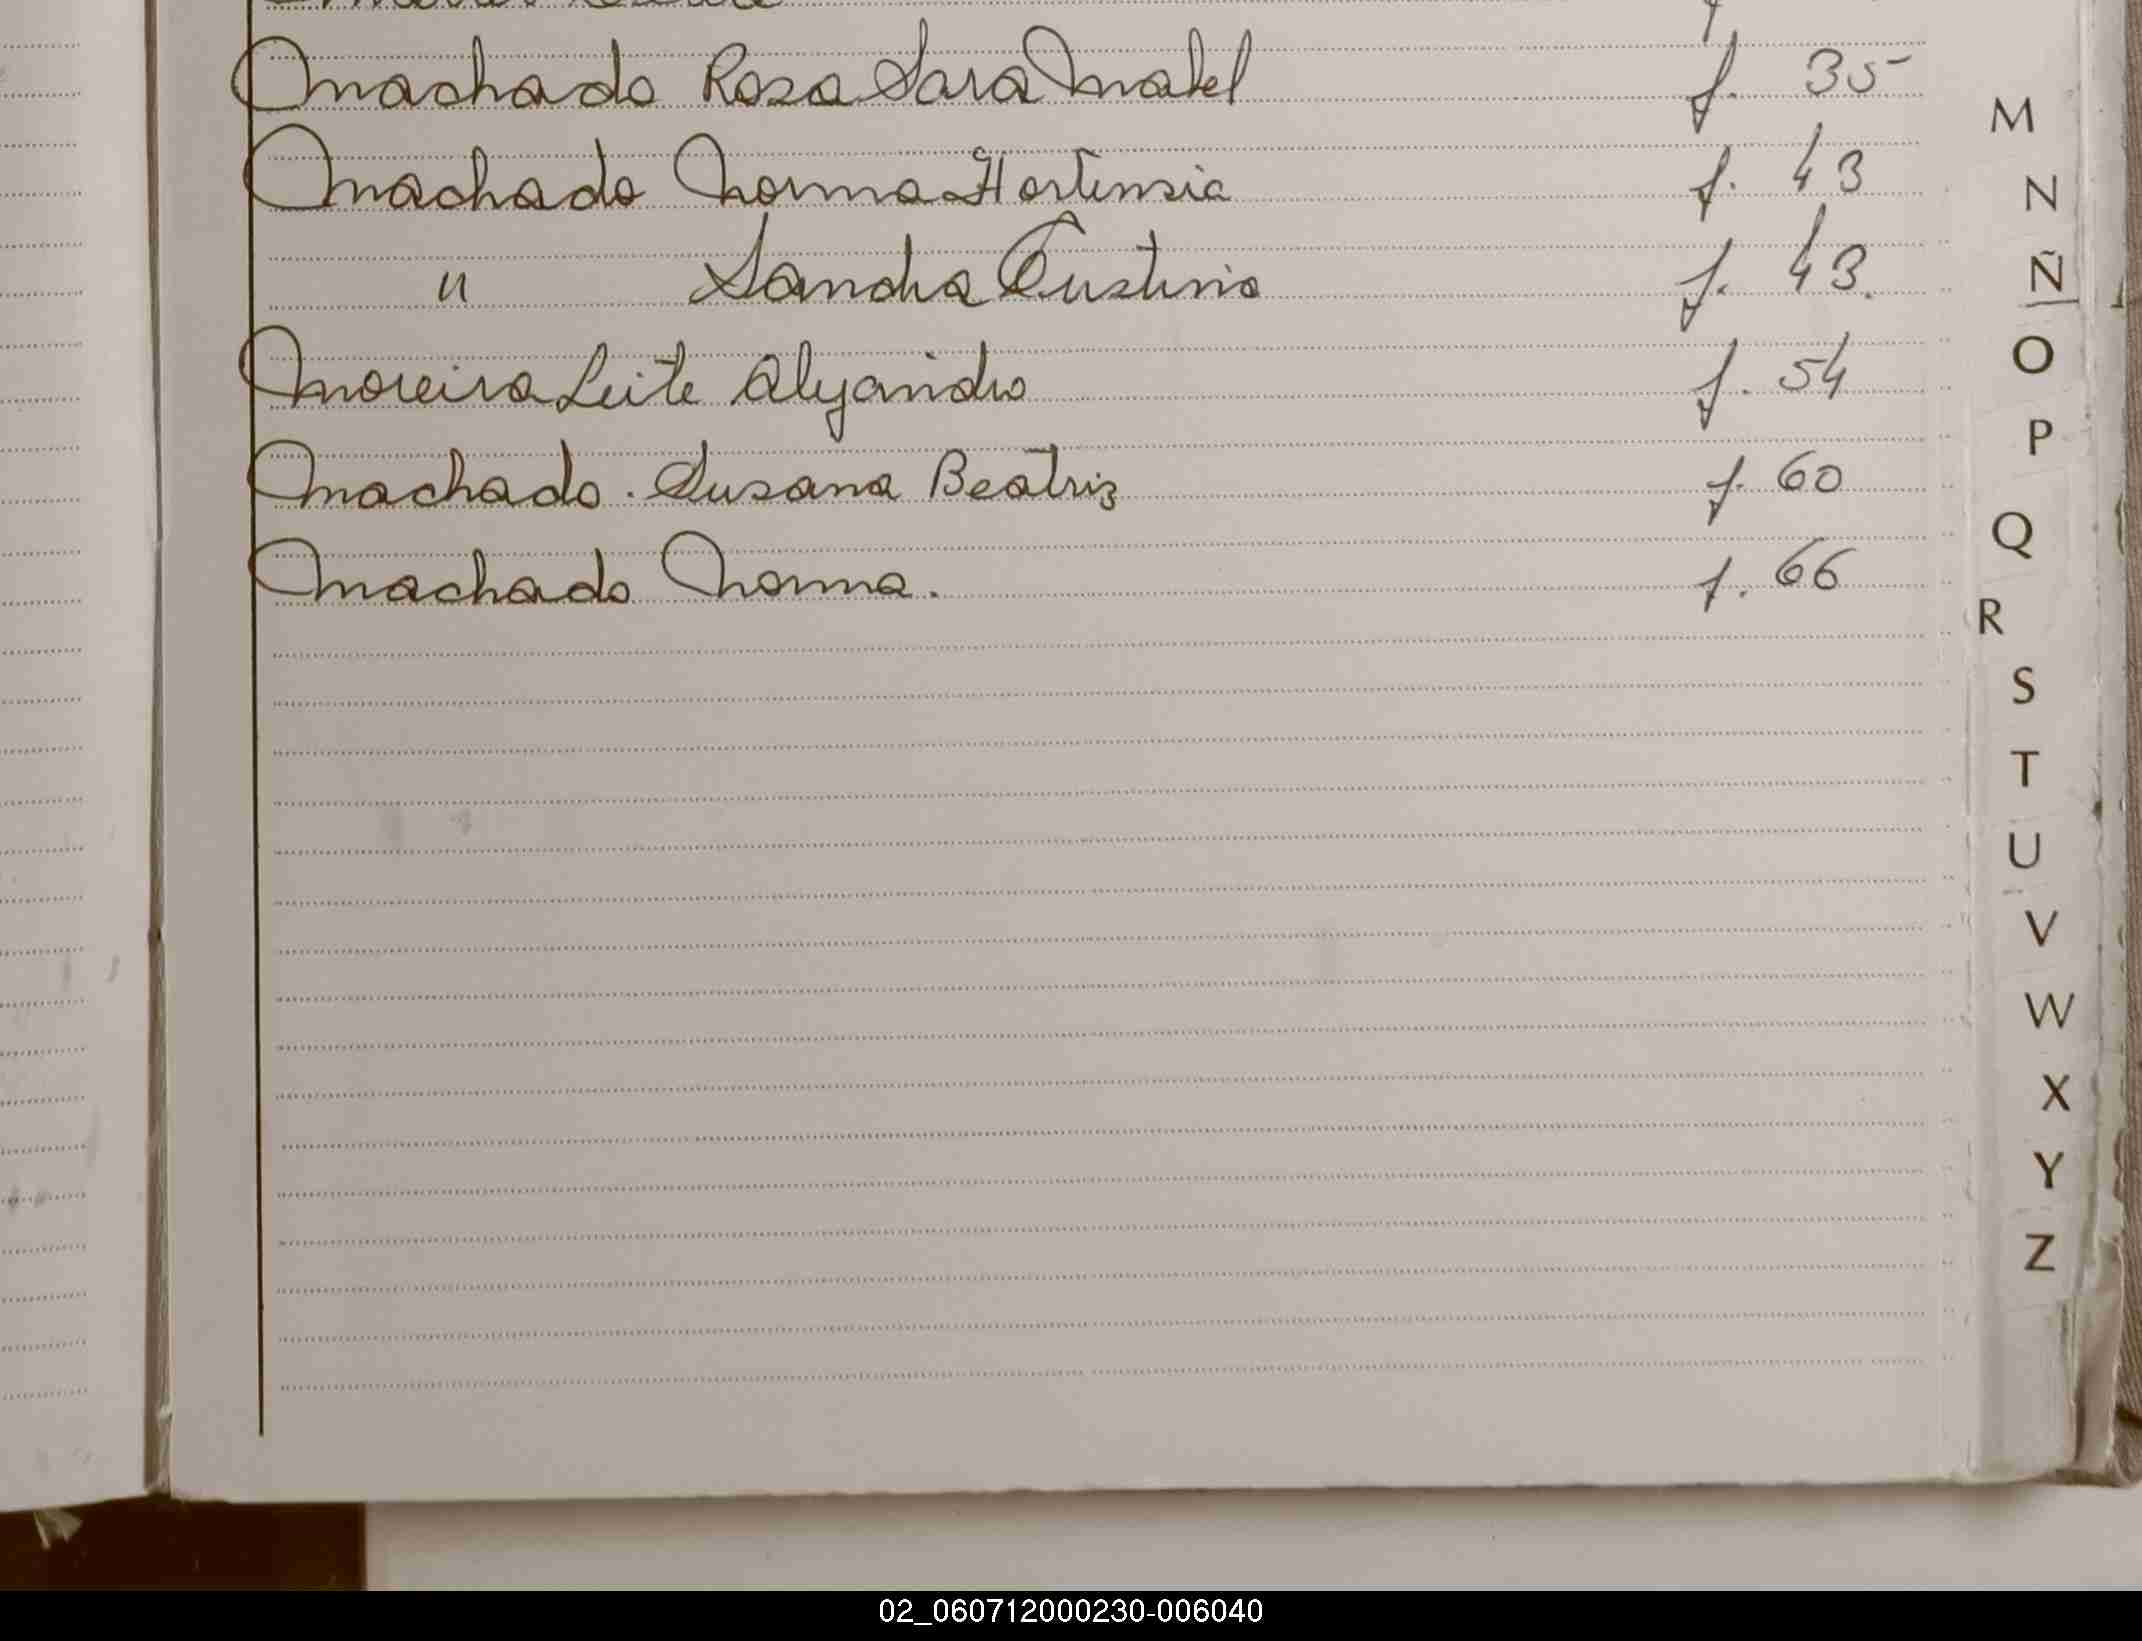 Machado Rosa Sara Mabel f. 35
Machado Norma Hortensia f. 43
" Sandra Cristina f. 43.
Moreira Leite Alejandro f. 54
Machado. Susana Beatriz f. 60
Machado Norma. f. 66
M
N
Ñ
O
P
Q
R
S
T
U
V
W
X
Y
Z
02_060712000230-006040